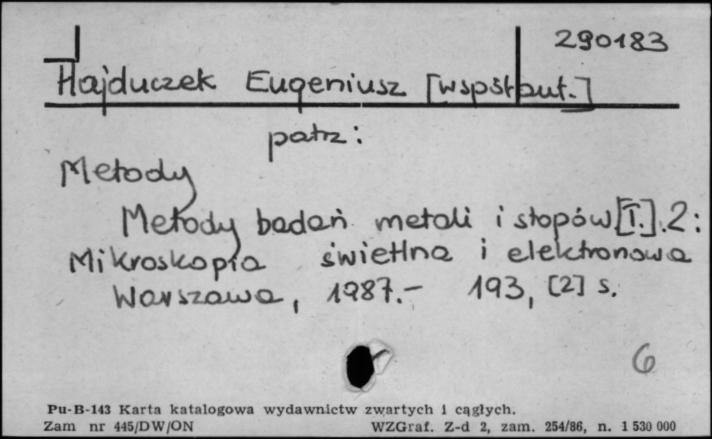 290183
Hajduczek Eugeniusz [współaut.]
patrz:
Metody
Metody badań metali i stopów [T.] 2:
Mikroskopia świetlna i elektronowa
Warszawa, 1987.- 193, [2] s.
6
Pu-B-143 Karta katalogowa wydawnictw zwartych i cągłych.
Zam nr 445/DW/ON WZGraf. Z-d 2, zam. 254/86, n. 1 530 000